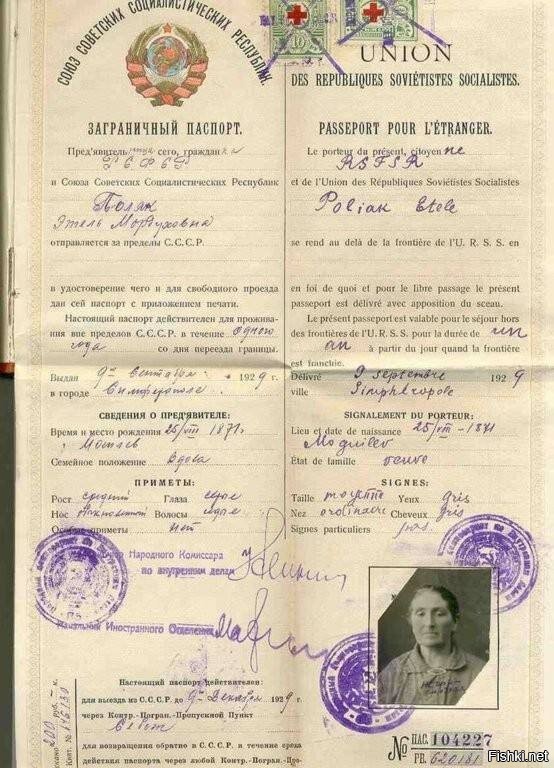 СОЮЗ СОВЕТСКИХ СОЦИАЛИСТИЧЕСКИХ РЕСПУБЛИК.
ЗАГРАНИЧНЫЙ ПАСПОРТ.
Пред'явитель сего, граждан ка
РСФСР
и Союза Советских Социалистических Республик
Поляк
Этель Мордуховна
отправляется за пределы С.С.С.Р.
в удостоверение чего и для свободного проезда
дан сей паспорт с приложением печати.
Настоящий паспорт действителен для прожива-
ния вне пределов С.С.С.Р. в течение одного
года со дня переезда границы.
Выдан 9го сентября 1929 г.
в городе Симферополе
СВЕДЕНИЯ О ПРЕД'ЯВИТЕЛЕ:
Время и место рождения 25/VIII 1871г.
г Могилев
Семейное положение вдова
ПРИМЕТЫ:
Рост средний Глаза серые
Нос Волосы серые
Особые приметы нет
Народного Комиссара
по внутренним делам
Начальник Иностранного Отделения
Настоящий паспорт действителен:
для выезда из С.С.С.Р. до 9го Декабря 1929 г.
через Контр.-Погран.-Пропускной Пункт
для возвращения обратно в С.С.С.Р. в течение срока
действия паспорта через любой Контр.-Погран.-Про-
UNION
DES REPUBLIQUES SOVIÉTISTES SOCIALISTES.
PASSEPORT POUR L'ÉTRANGER.
Le porteur du présent, citoyen ne
RSFSR
et de l'Union des Républiques Soviétistes Socialistes
Poliak Etele
se rend au delà de la frontière de l'U.R.S.S. en
en foi de quoi et pour le libre passage le présent
passeport est délivré avec apposition du sceau.
Le présent passeport est valable pour le séjour hors
des frontières de l'U.R.S.S. pour la durée de un
an à partir du jour quand la frontière
est franchie.
Délivré 9 septembre 1929
ville Simphéropole
SIGNALEMENT DU PORTEUR:
Lieu et date de naissance 25/VIII-1871
Moguilev
État de famille veuve
SIGNES:
Taille moyenne Yeux gris
Nez ordinaire Cheveux gris
Signes particuliers pas.
№ ПАС. 104227
FB. 620181
10
Fishki.net